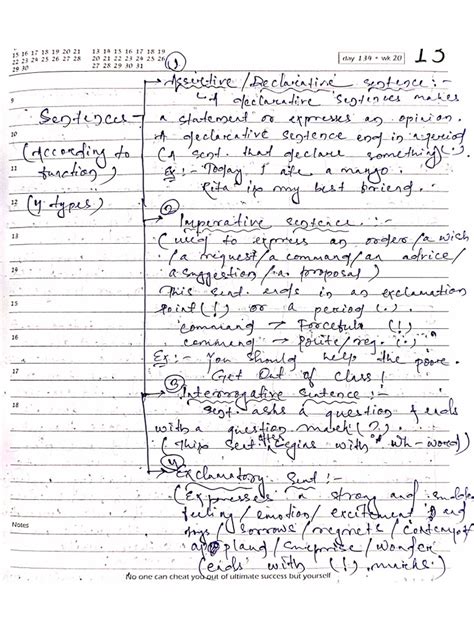 15 16 17 18 19 20 21 13 14 15 16 17 18 19
22 23 24 25 26 27 28 20 21 22 23 24 25 26
29 30 27 28 29 30 31
day 134 • wk 20
15
①
Assertive / Declarative sentence :-
↳ A declarative sentences makes
Sentences
a statement or expresses an opinion.
A declarative sentence end in a period
(According to
(A sent. that declare something (.)
function)
Ex :- Today I ate a mango.
Rita is my best friend.
(4 types)
②
Imperative sentence :-
(used to express an order/a wish
/a request/a command/an advice/
a suggestion/a proposal)
This sent. ends in an exclamation
point (!) or a period (.)
command → Forceful (!)
command → Polite/req. (.)
Ex :- You should help the poore.
Get Out of Class!
③
Interrogative sentence :-
Sent asks a question & ends
with a question mark (?).
(This sent begins with "Wh-word)
④
Exclamatory Sent :-
(Expresses a strong and
feeling / emotion / excitement and
/ sorrows / regrets /
/ surprise / wonder
(ends with (!) marks.)
9
10
11
12
13
14
15
17
18
Notes
No one can cheat you out of ultimate success but yourself